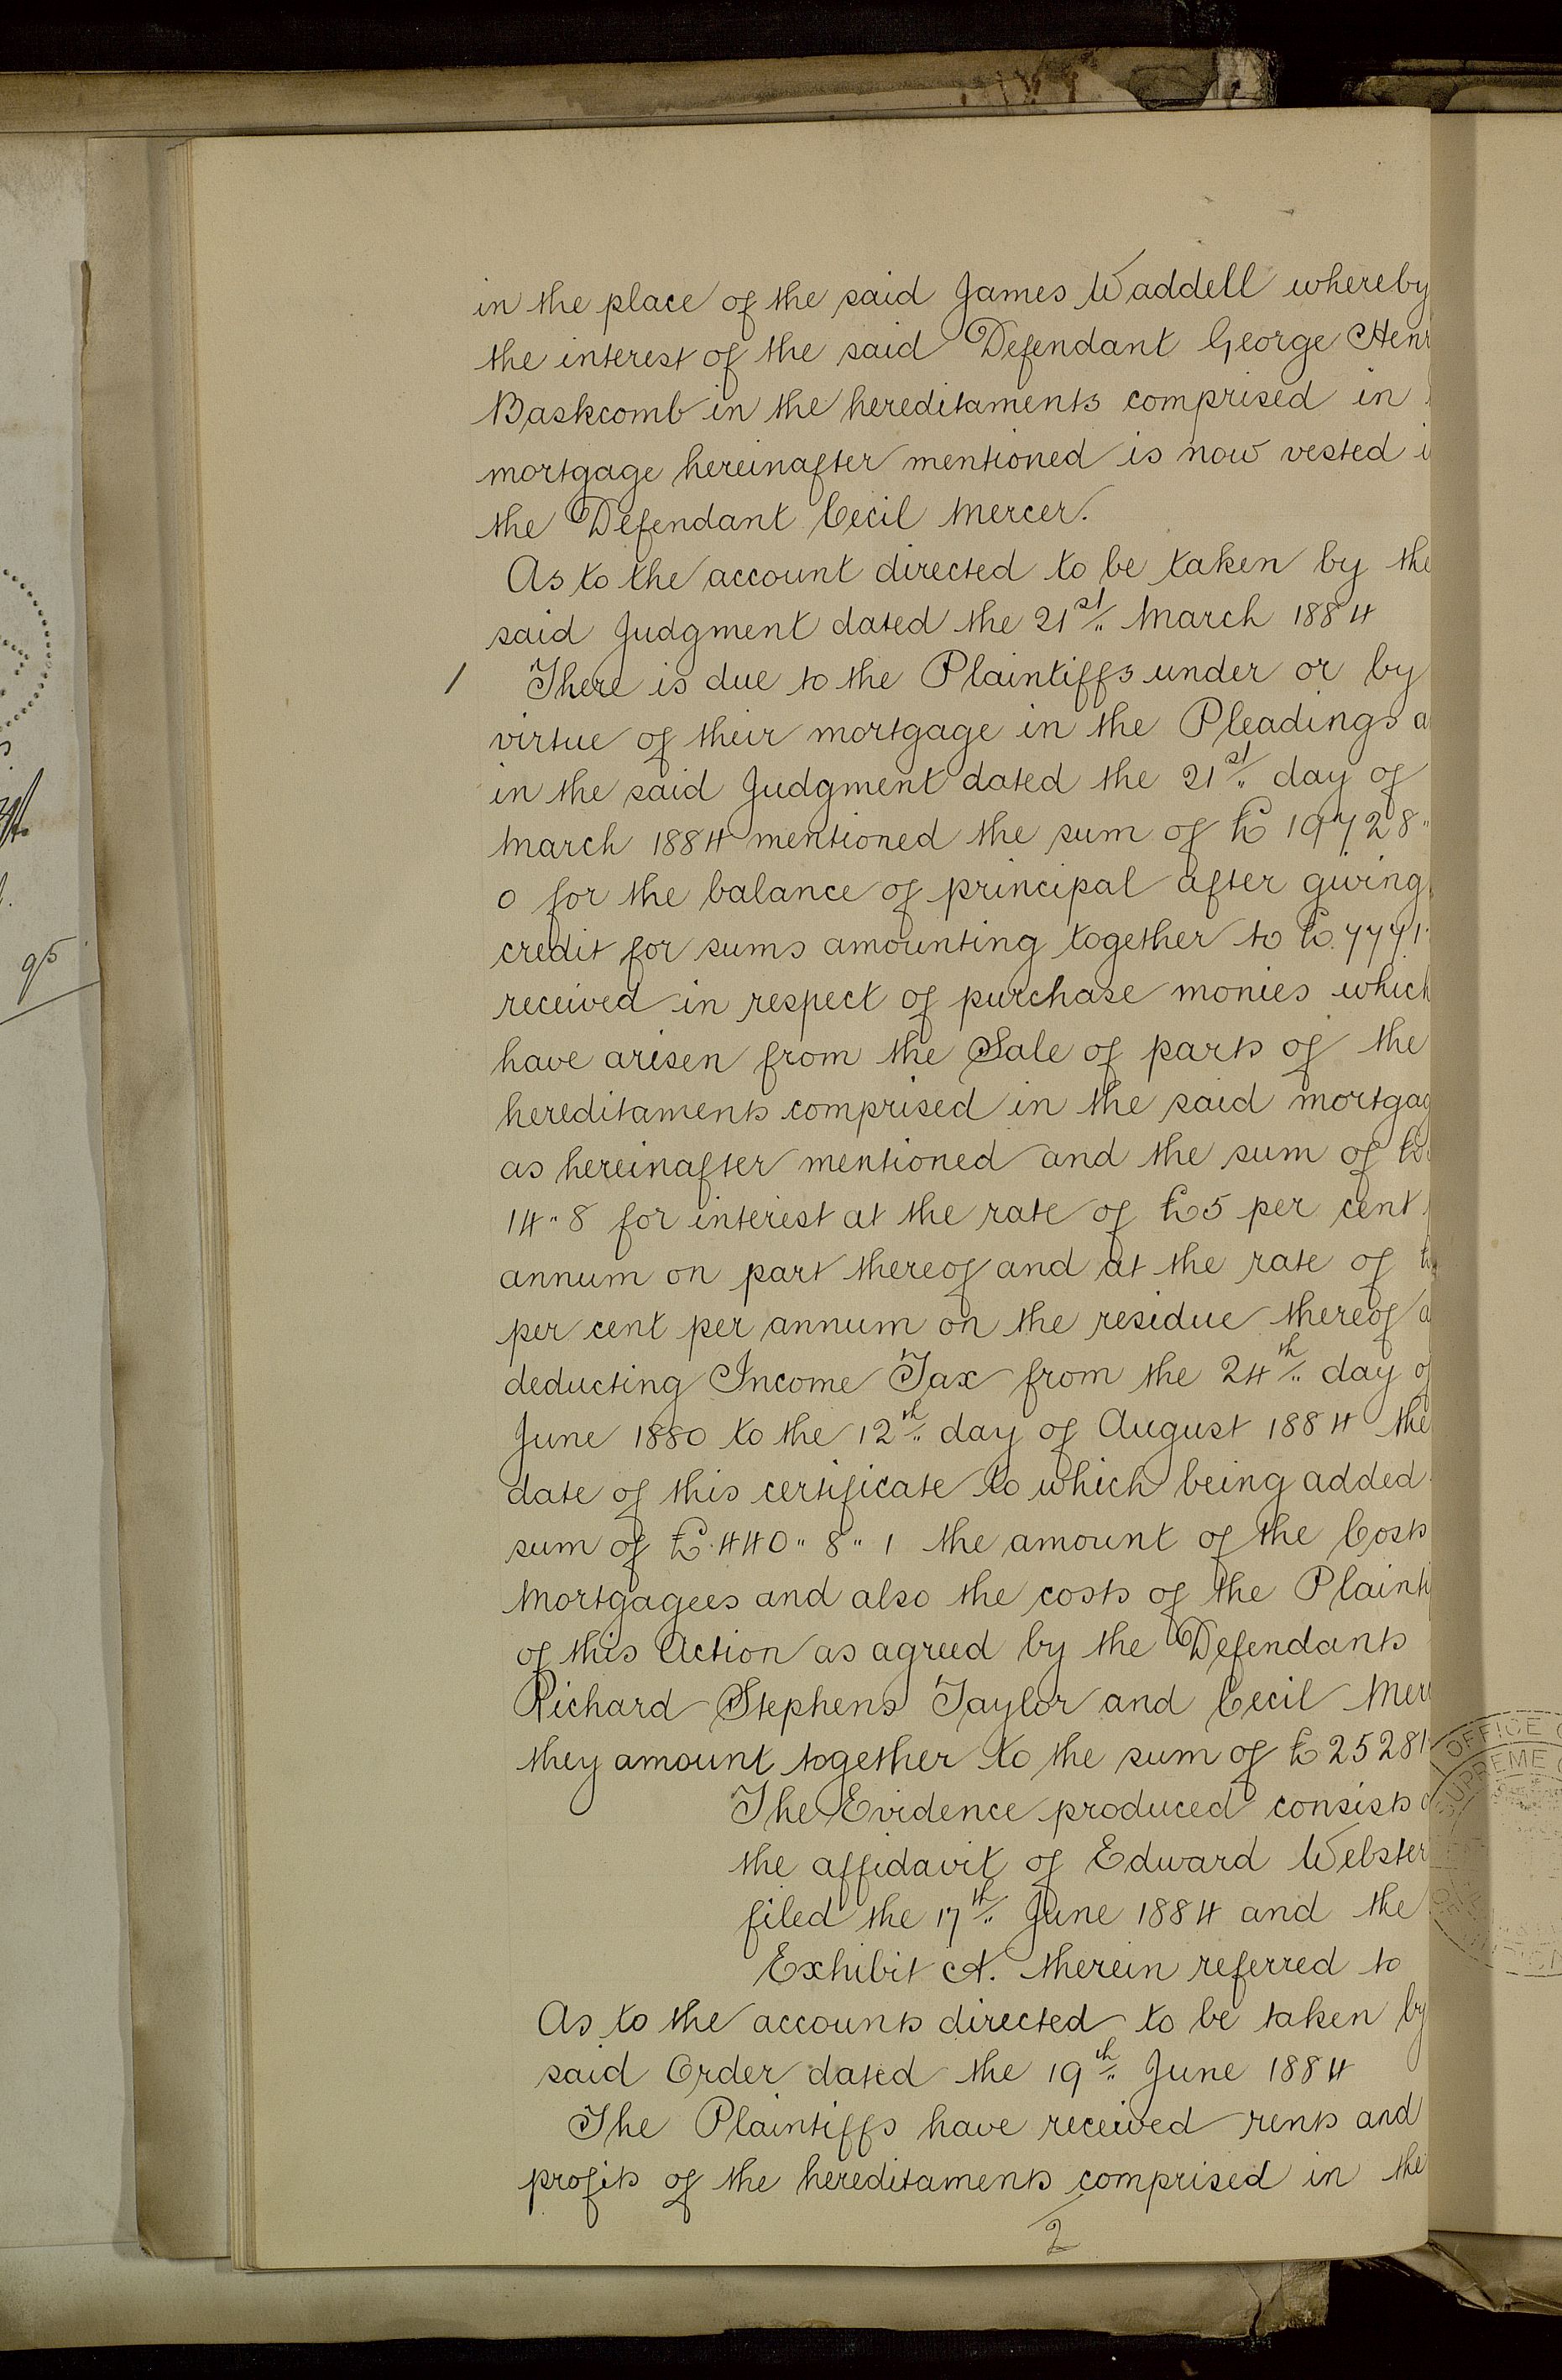 in the place of the said James Waddell whereby
the interest of the said Defendant George Henr
Baskcomb in the hereditaments comprised in
mortgage hereinafter mentioned is now vested i
the Defendant Cecil Mercer.
As to the account directed to be taken by the
said Judgment dated the 21st March 1884
1 There is due to the Plaintiffs under or by
virtue of their mortgage in the Pleadings a
in the said Judgment dated the 21st day of
March 1884 mentioned the sum of £19728"
0 for the balance of principal after giving
credit for sums amounting together to £.7771
received in respect of purchase monies which
have arisen from the Sale of parts of the
hereditaments comprised in the said mortgag
as hereinafter mentioned and the sum of £
14"8 for interest at the rate of £5 per cent
annum on part thereof and at the rate of £
per cent per annum on the residue thereof a
deducting Income Tax from the 24th day of
June 1880 to the 12th day of August 1884 the
date of this certificate to which being added
sum of £.440"8"1 the amount of the Costs
Mortgagees and also the costs of the Plainti
of this Action as agreed by the Defendants
Richard Stephens Taylor and Cecil Mer
they amount together to the sum of £25281
The Evidence produced consists o
the affidavit of Edward Webster
filed the 17th June 1884 and the
Exhibit A. therein referred to
As to the accounts directed to be taken by
said Order dated the 19th June 1884
The Plaintiffs have received rents and
profits of the hereditaments comprised in the
2
95
OFFICE O
SUPREME C